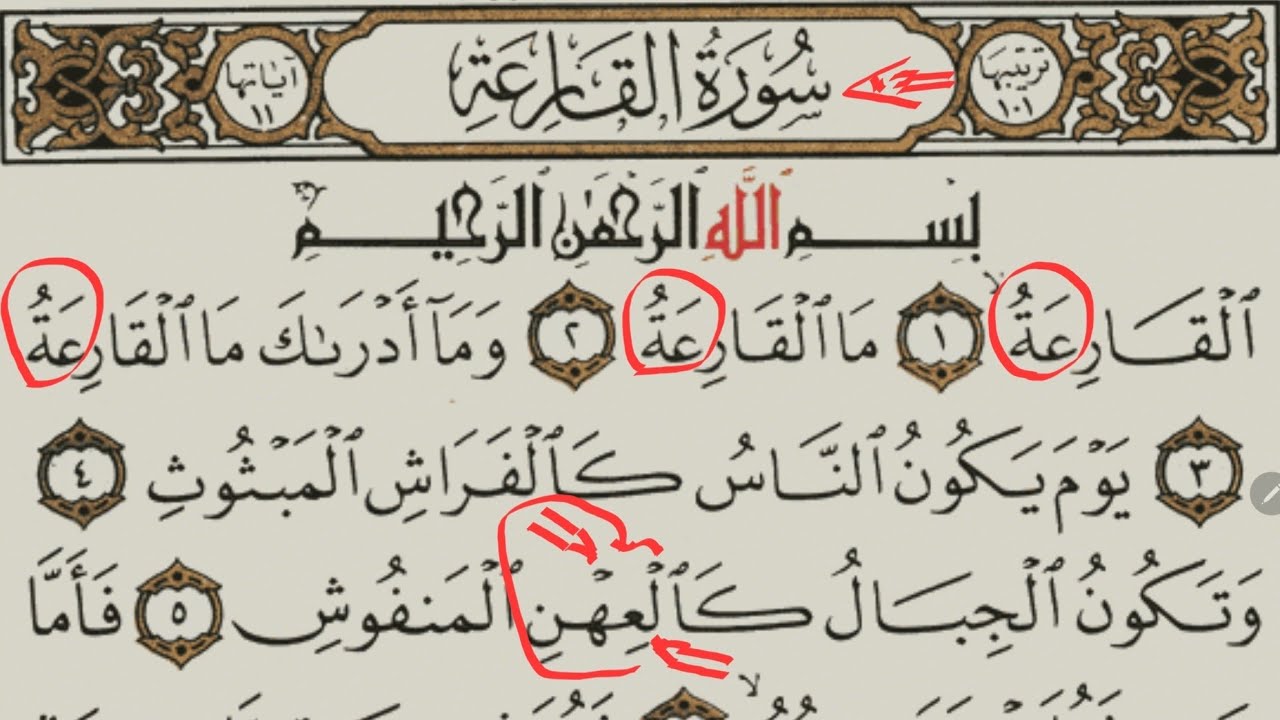 ترتيبها ١٠١ سُورَةُ الْقَارِعَةِ آيَاتها ١١
بِسْمِ ٱللَّهِ ٱلرَّحْمَٰنِ ٱلرَّحِيمِ
ٱلْقَارِعَةُ ۝١ مَا ٱلْقَارِعَةُ ۝٢ وَمَآ أَدْرَىٰكَ مَا ٱلْقَارِعَةُ
۝٣ يَوْمَ يَكُونُ ٱلنَّاسُ كَٱلْفَرَاشِ ٱلْمَبْثُوثِ ۝٤
وَتَكُونُ ٱلْجِبَالُ كَٱلْعِهْنِ ٱلْمَنفُوشِ ۝٥ فَأَمَّا